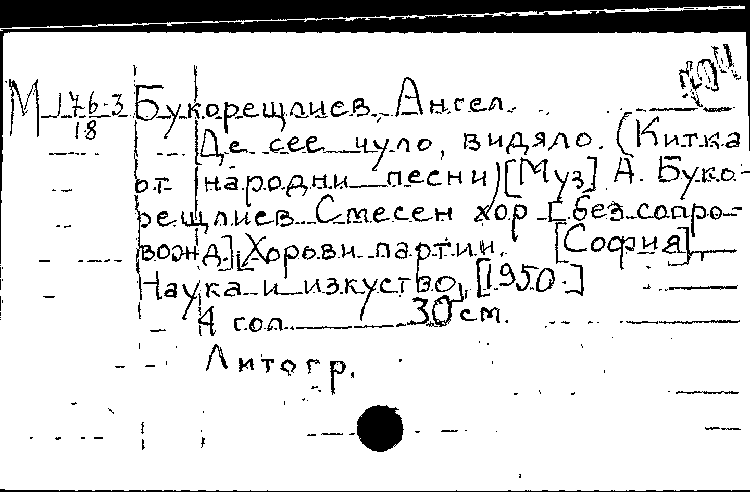 704
М 176-3 Букорещлиев, Ангел.
18
Де се е чуло, видяло. (Китка
от народни песни) [Муз] А. Буко-
рещлиев Смесен хор [без сопро-
вожд]. Хорови партии. [София],
Наука и изкуство, [1950.]
4 гол. 30 см.
Литогр.